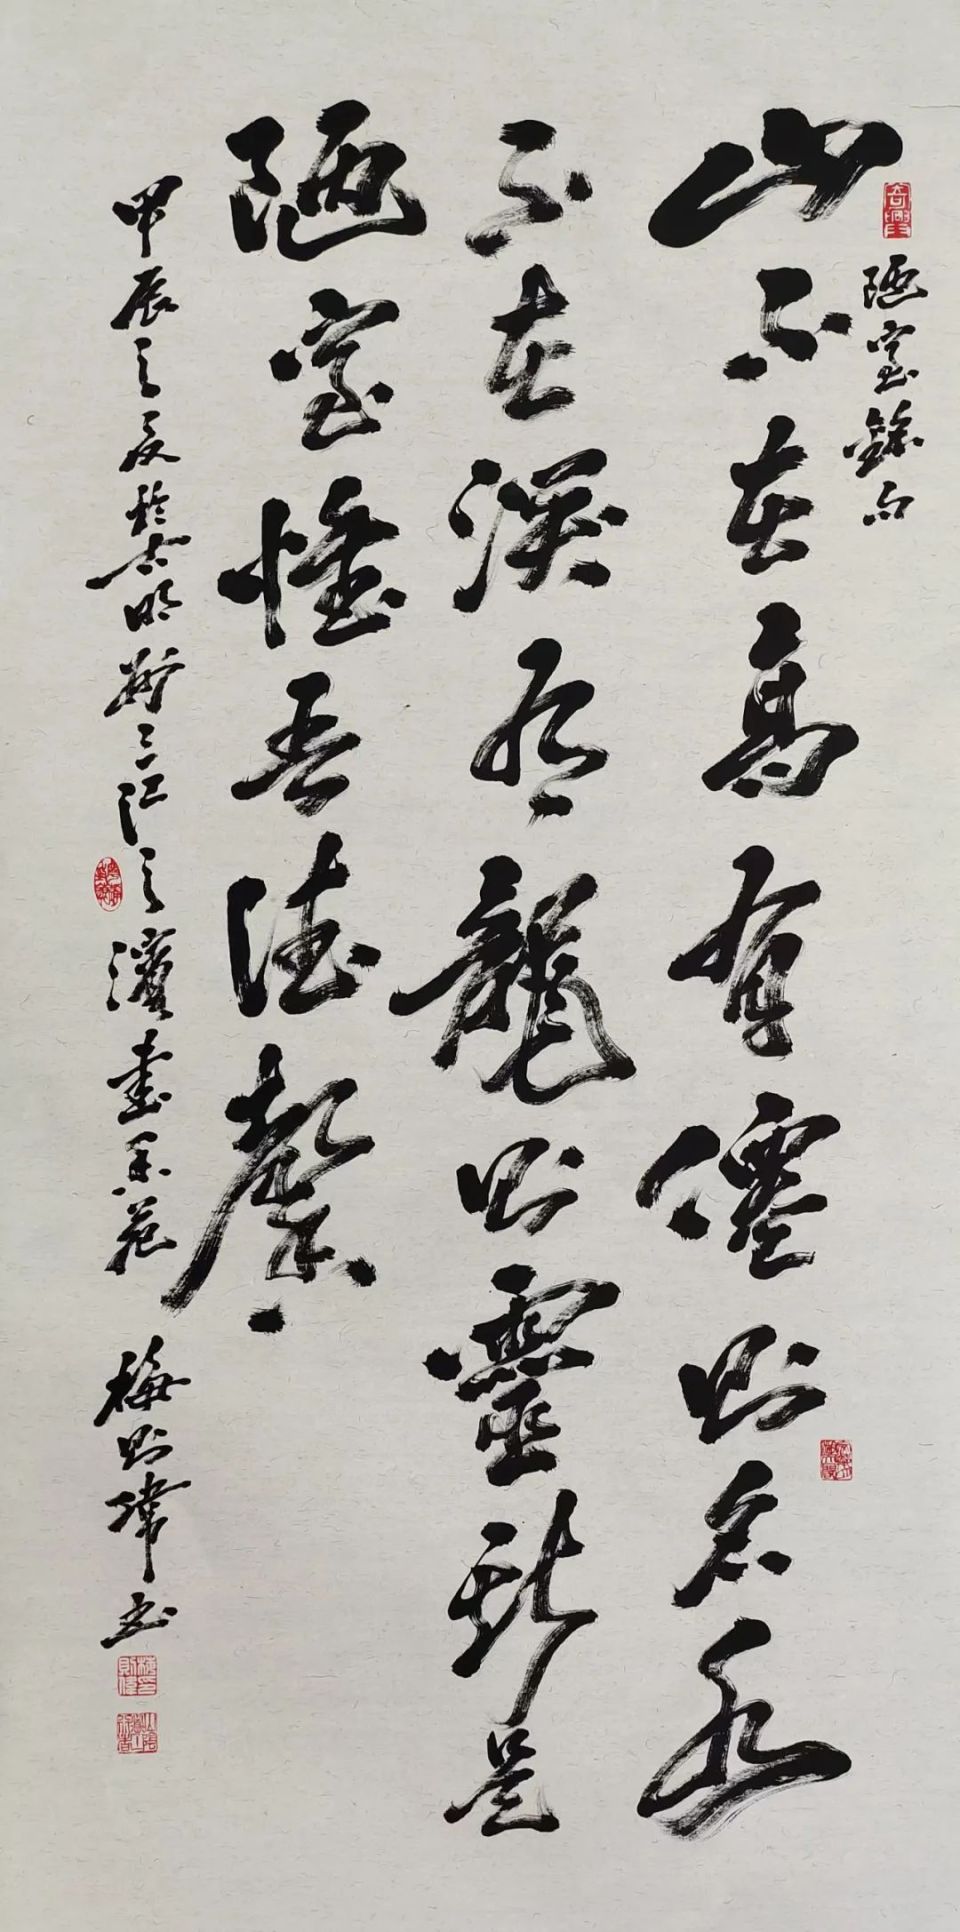 陋室銘句
山不在高有僊則名水
不在深有龍則靈斯是
陋室惟吾德馨
甲辰之夏於古明州三江之濱畫禾苑
梅則瑋書